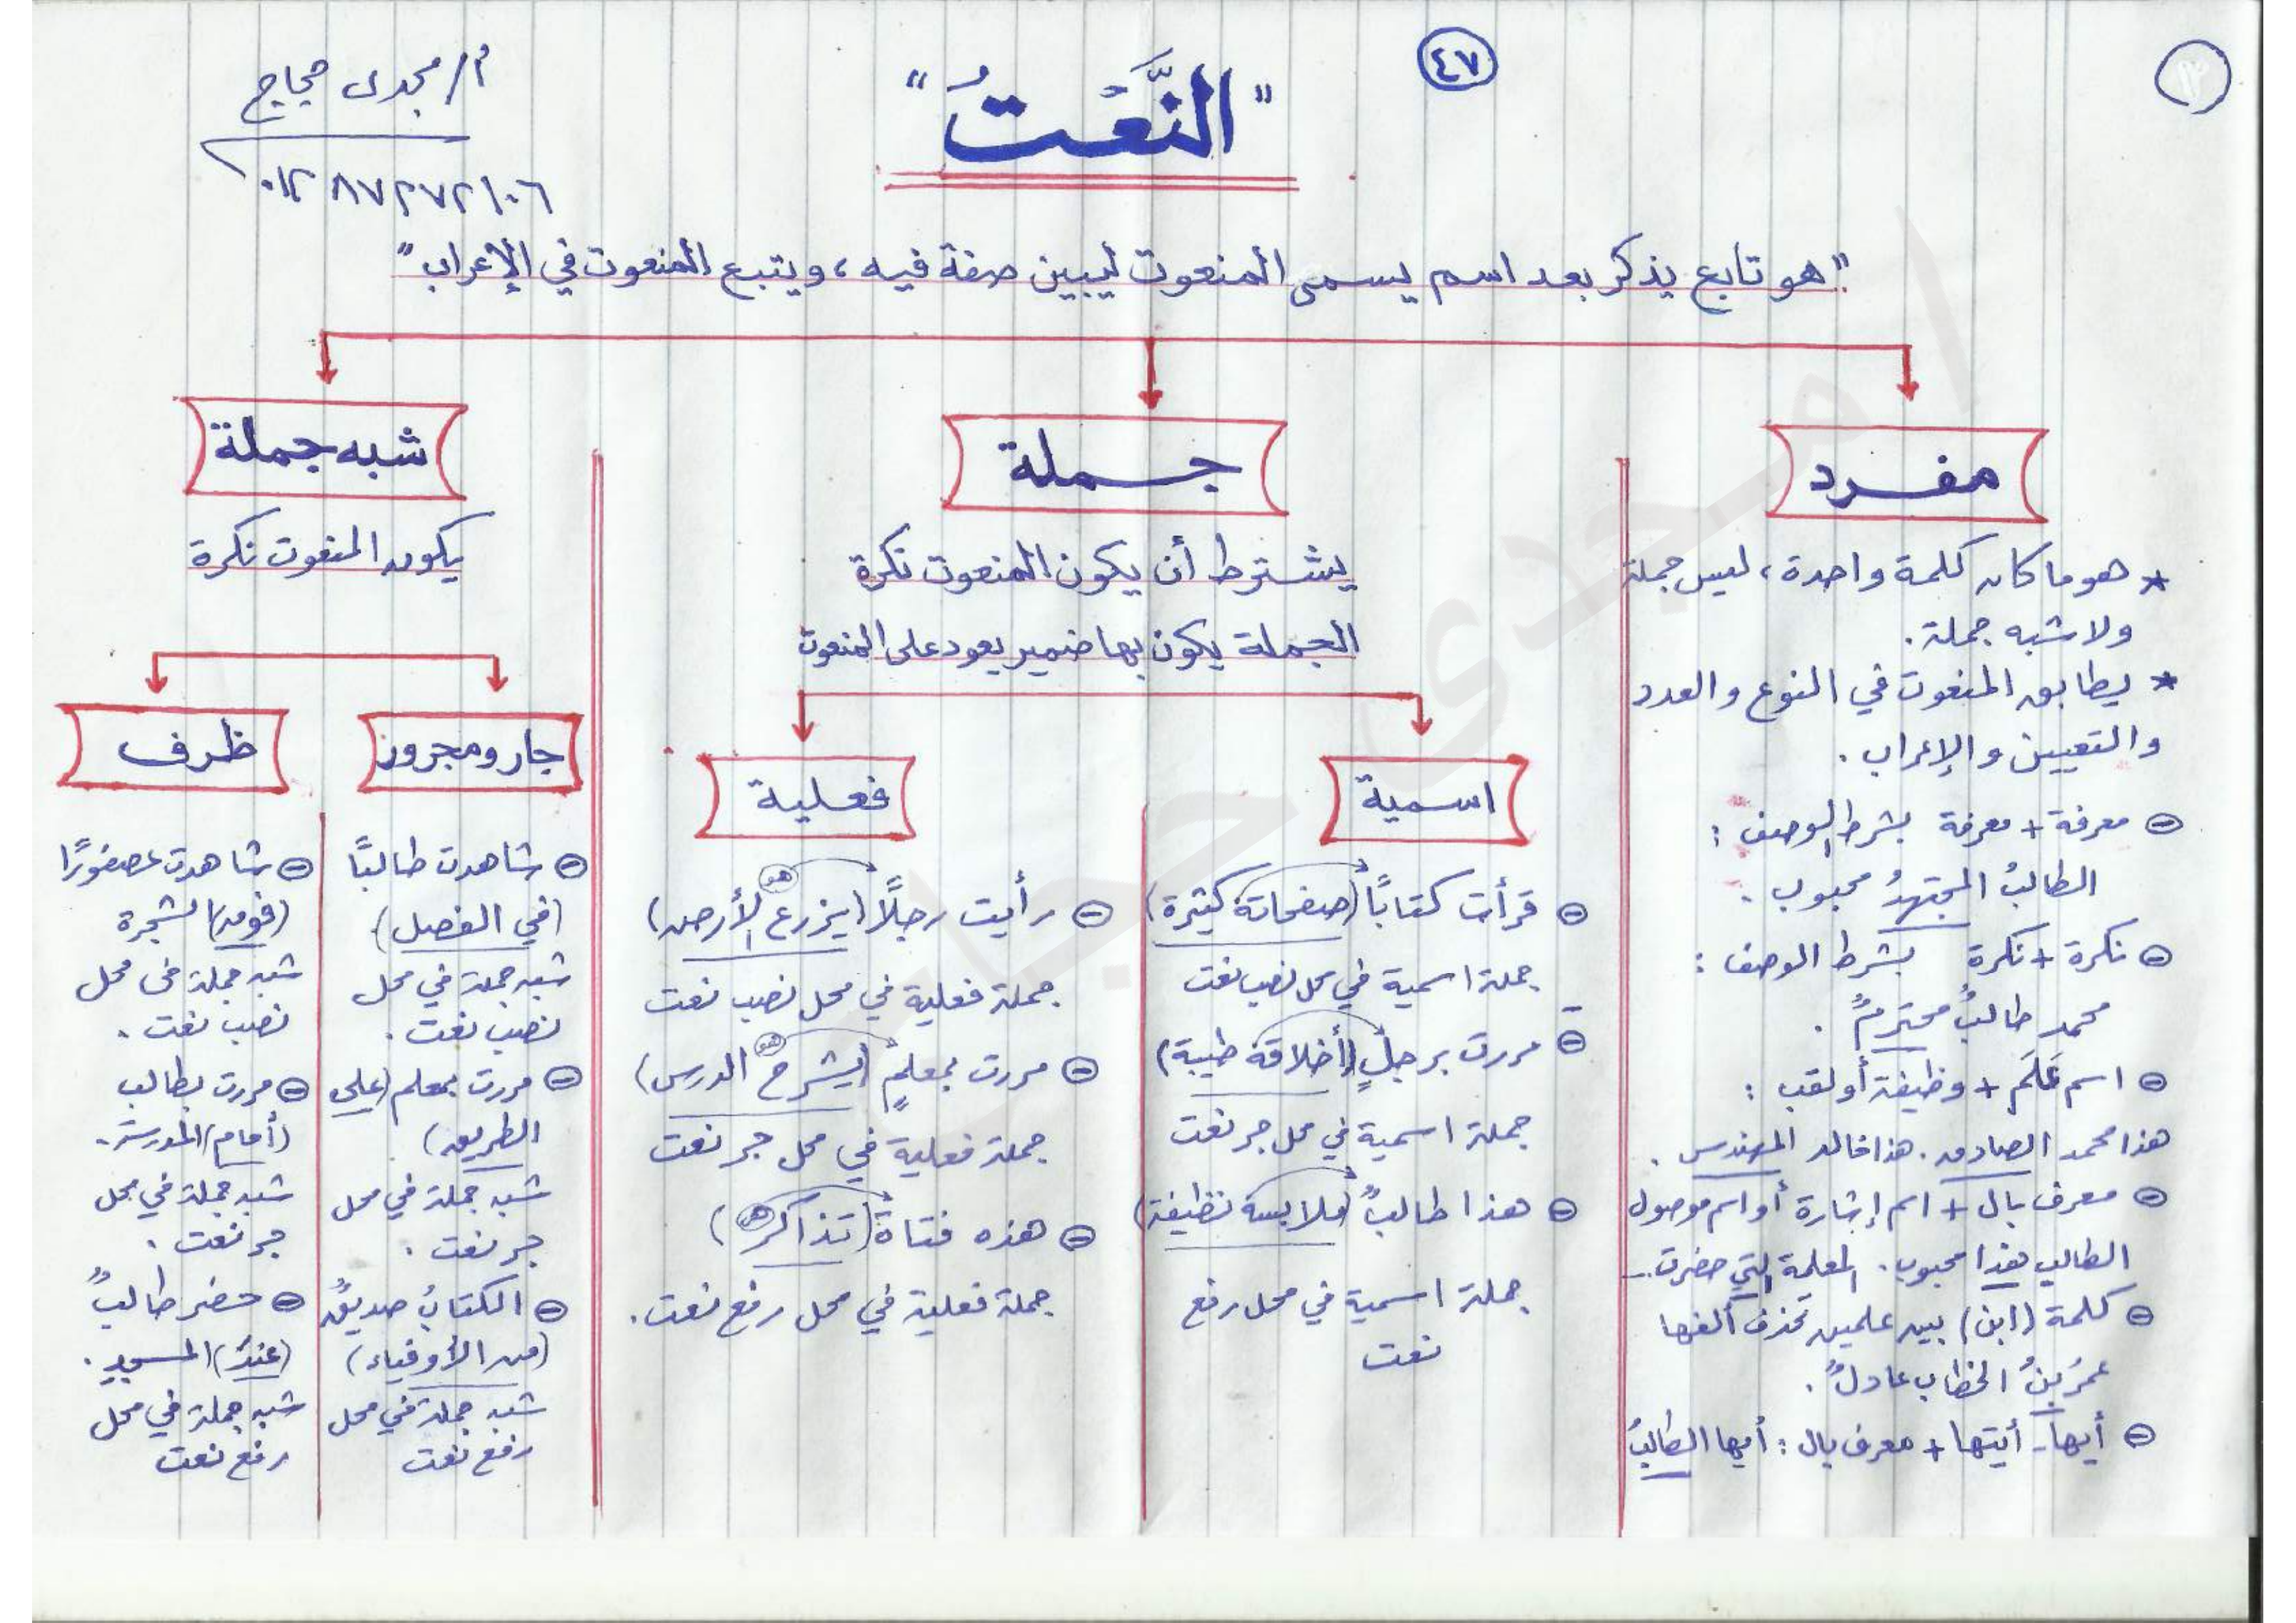 ٤٧
أ/ مجدى حجاج
"النَّعْتُ"
٠١٢٨٧٢٧٢١٠٦
"هو تابع يذكر بعد اسم يسمى المنعوت ليبين صفة فيه، ويتبع المنعوت في الإعراب"
مفرد
* هو ما كان كلمة واحدة، ليس جملة
ولا شبه جملة.
* يطابق المنعوت في النوع والعدد
والتعيين والإعراب.
⊖ معرفة + معرفة بشرط الوصف:
الطالبُ المجتهدُ محبوب.
⊖ نكرة + نكرة بشرط الوصف:
محمد طالبٌ محترمٌ.
⊖ اسم عَلَم + وظيفة أو لقب:
هذا محمد الصادق. هذا خالد المهندس.
⊖ معرف بال + اسم إشارة أو اسم موصول
الطالب هذا محبوب. المعلمة التي حضرت..
⊖ كلمة (ابن) بين علمين تحذف ألفها
عمرُ بنُ الخطاب عادلٌ.
⊖ أيها - أيتها + معرف بال: أيها الطالبُ
جملة
يشترط أن يكون المنعوت نكرة
الجملة يكون بها ضمير يعود على المنعوت
اسمية
⊖ قرأت كتابًا (صفحاته كثيرة)
جملة اسمية في محل نصب نعت
⊖ مررت برجلٍ (أخلاقه طيبة)
جملة اسمية في محل جر نعت
⊖ هذا طالبٌ (ملابسه نظيفة)
جملة اسمية في محل رفع
نعت
فعلية
هو
⊖ رأيت رجلًا (يزرع الأرض)
جملة فعلية في محل نصب نعت
هو
⊖ مررت بمعلمٍ (يشرح الدرس)
جملة فعلية في محل جر نعت
⊖ هذه فتاة (تذاكر هي)
جملة فعلية في محل رفع نعت.
شبه جملة
يكون المنعوت نكرة
جار ومجرور
⊖ شاهدت طالبًا
(في الفصل)
شبه جملة في محل
نصب نعت.
⊖ مررت بمعلم (على
الطريق)
شبه جملة في محل
جر نعت.
⊖ الكتابُ صديقٌ
(من الأوفياء)
شبه جملة في محل
رفع نعت
ظرف
⊖ شاهدت عصفورًا
(فوق) الشجرة
شبه جملة في محل
نصب نعت.
⊖ مررت بطالب
(أمام) المدرسة.
شبه جملة في محل
جر نعت.
⊖ حضر طالبٌ
(عندَ) المسجد.
شبه جملة في محل
رفع نعت